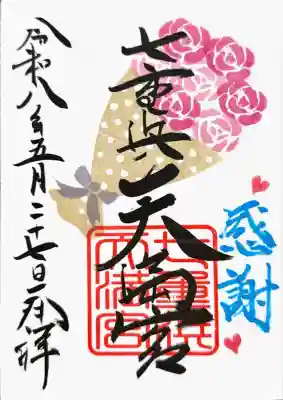 感謝
七重浜天満宮
七重浜
天満宮
令和八年五月二十七日奉拝